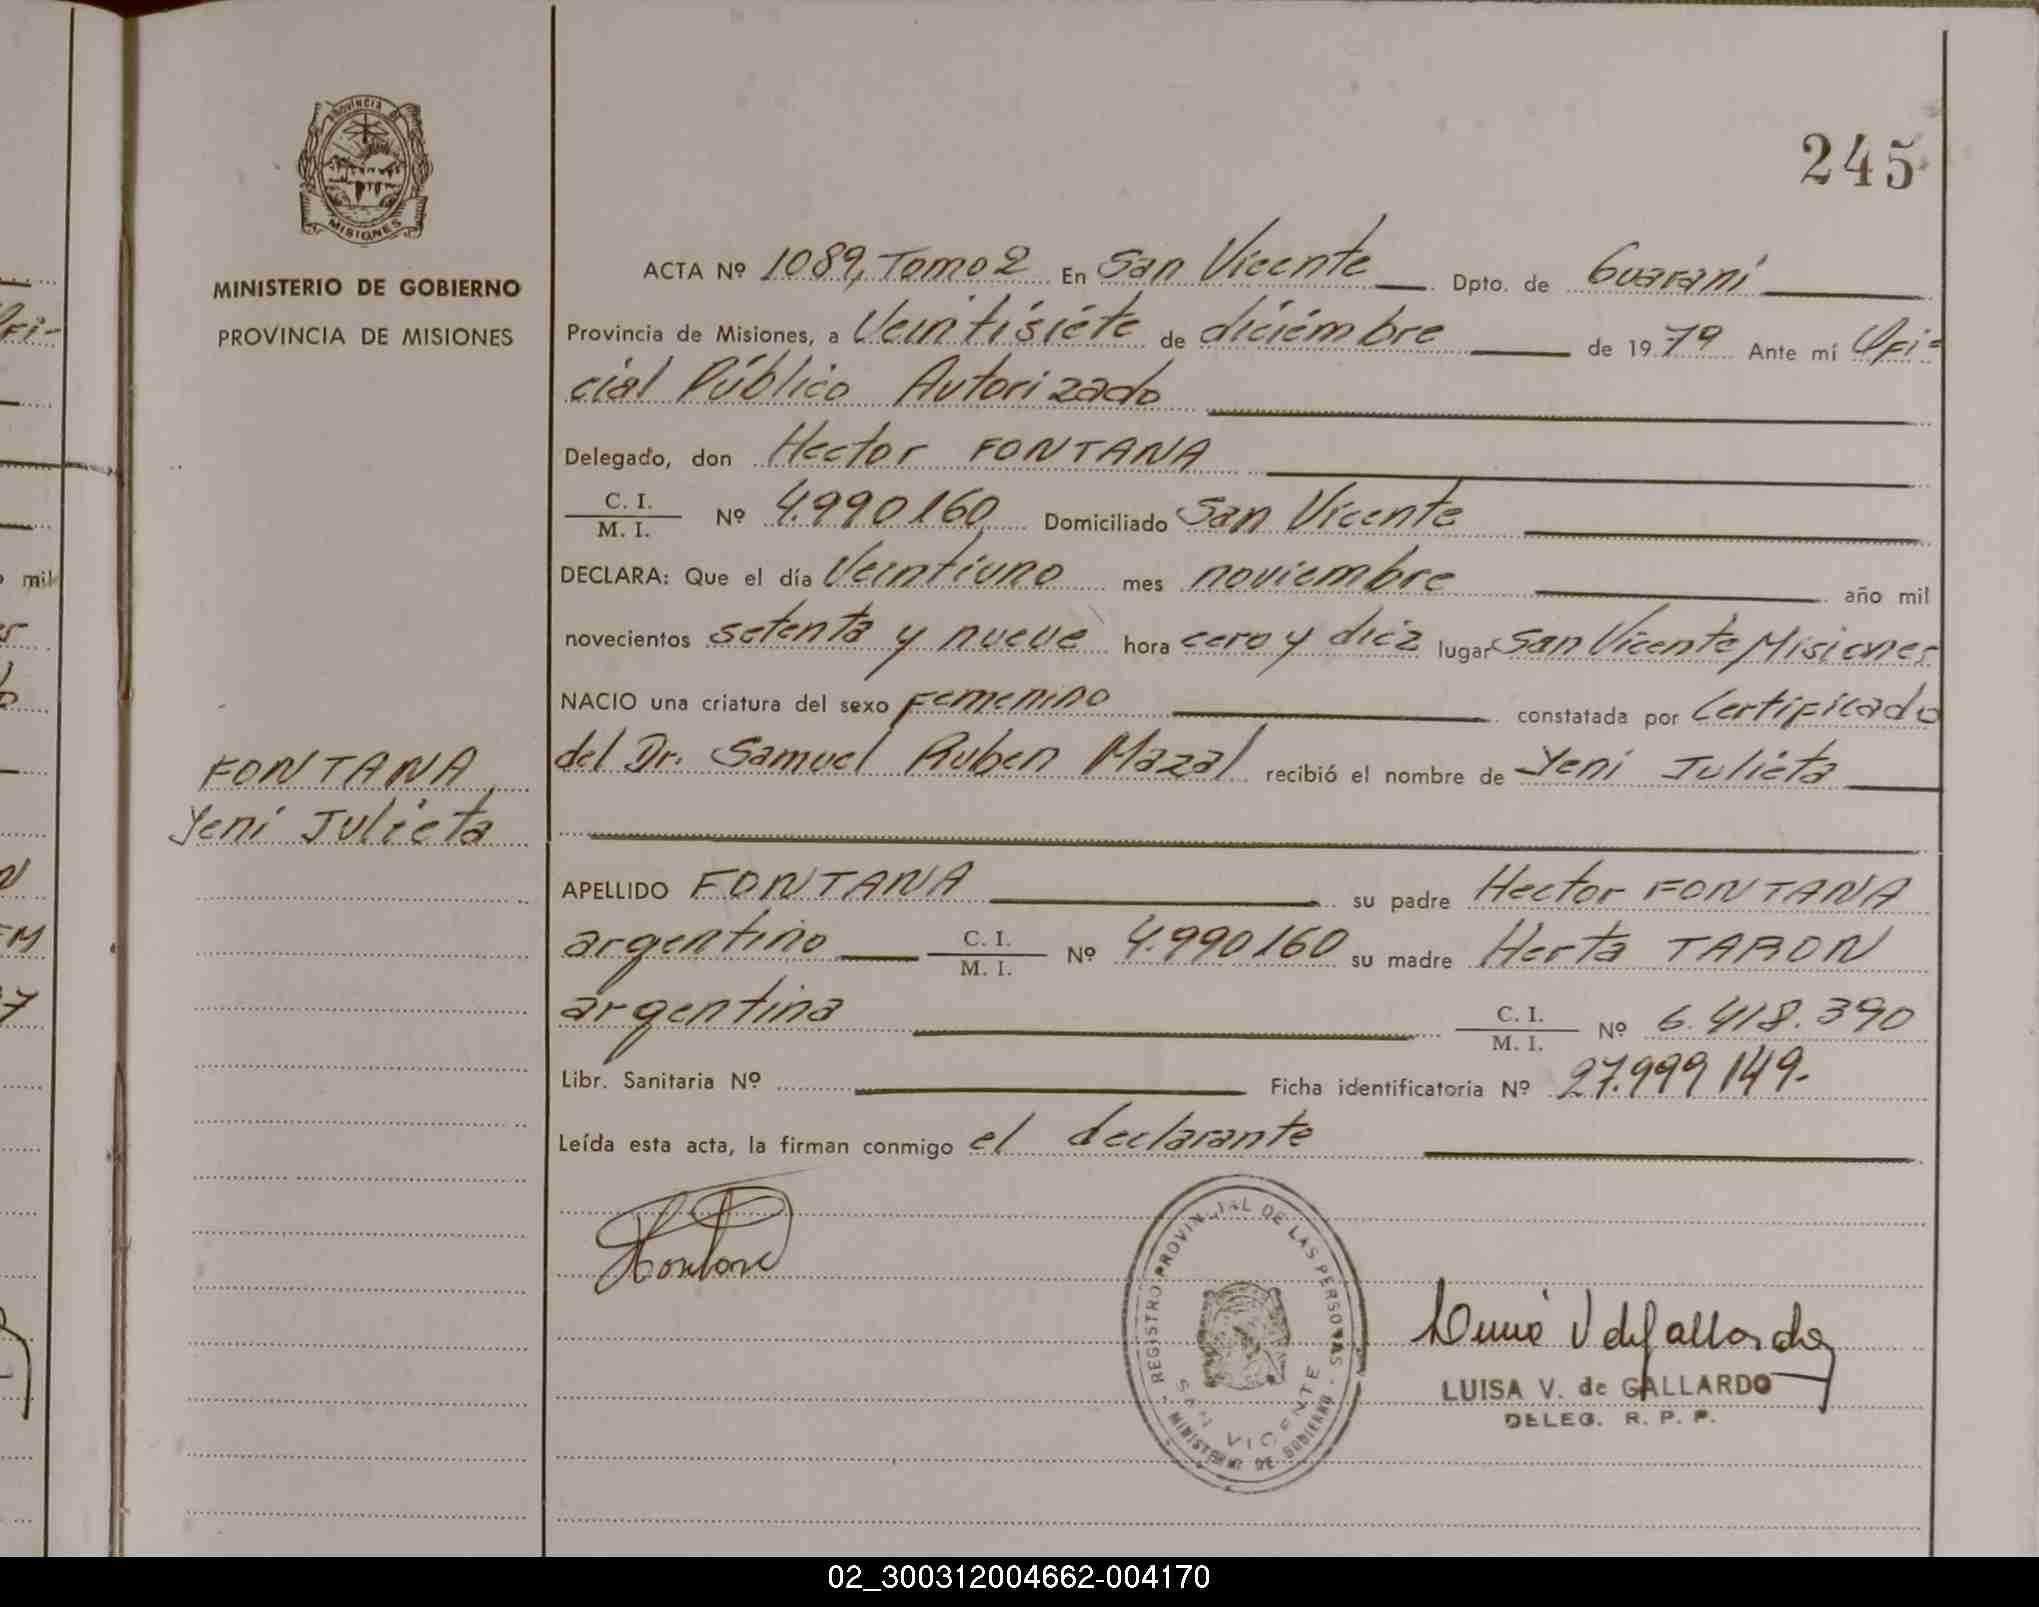 245
PROVINCIA DE
MISIONES
MINISTERIO DE GOBIERNO
PROVINCIA DE MISIONES
ACTA Nº 1089, Tomo 2 En San Vicente Dpto. de Guaraní
Provincia de Misiones, a Veintisiete de diciembre de 1979 Ante mí Ofi=
cial Público Autorizado
Delegado, don Hector FONTANA
C. I.
M. I. Nº 4.990.160 Domiciliado San Vicente
DECLARA: Que el día Veintiuno mes noviembre año mil
novecientos setenta y nueve hora cero y diez lugar San Vicente Misiones
NACIO una criatura del sexo Femenino constatada por Certificado
del Dr. Samuel Ruben Mazal recibió el nombre de Yeni Julieta
FONTANA
Yeni Julieta
APELLIDO FONTANA su padre Hector FONTANA
argentino C. I. M. I. Nº 4.990160 su madre Herta TARON
argentina C. I. M. I. Nº 6.418.390
Libr. Sanitaria Nº Ficha identificatoria Nº 27.999.149-
Leída esta acta, la firman conmigo el declarante
REGISTRO PROVINCIAL DE LAS PERSONAS
SAN VICENTE
MINISTERIO DE GOBIERNO
LUISA V. de GALLARDO
DELEG. R. P. P.
02_300312004662-004170